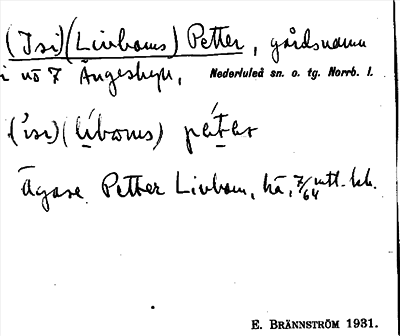 (Isi)(Livboms) Petter, gårdsnamn
i no 7 Ängesbyn, Nederluleå sn. o. tg. Norrb. l.
(isi)(líboms) petər
Ägare Petter Livbom, hä, 7/64 mtl.
E. BRÄNNSTRÖM 1931.